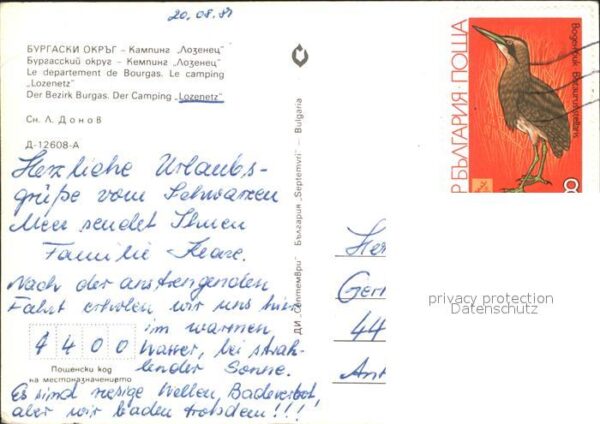 20.08.81
БУРГАСКИ ОКРЪГ – Кампинг „Лозенец"
Бургасский округ – Кемпинг „Лозенец"
Le departement de Bourgas. Le camping
„Lozenetz"
Der Bezirk Burgas. Der Camping „Lozenetz"
Сн. Л. Донов
Д-12608-А
Herzliche Urlaubs-
grüße vom Schwarzen
Meer sendet Ihnen
Familie
Nach der anstrengenden
Fahrt erholen wir uns hier
im warmen
Wasser, bei strah-
lender Sonne.
Es sind riesige Wellen, Badeverbot,
aber wir baden trotzdem!!!
4400
Пощенски код
на местоназначението
ДИ „Септември" България „Septemvri" – Bulgaria
Her
Gern
44
Ant
НР БЪЛГАРИЯ · ПОЩА
Воден бик Botaurus stellaris
8
privacy protection
Datenschutz